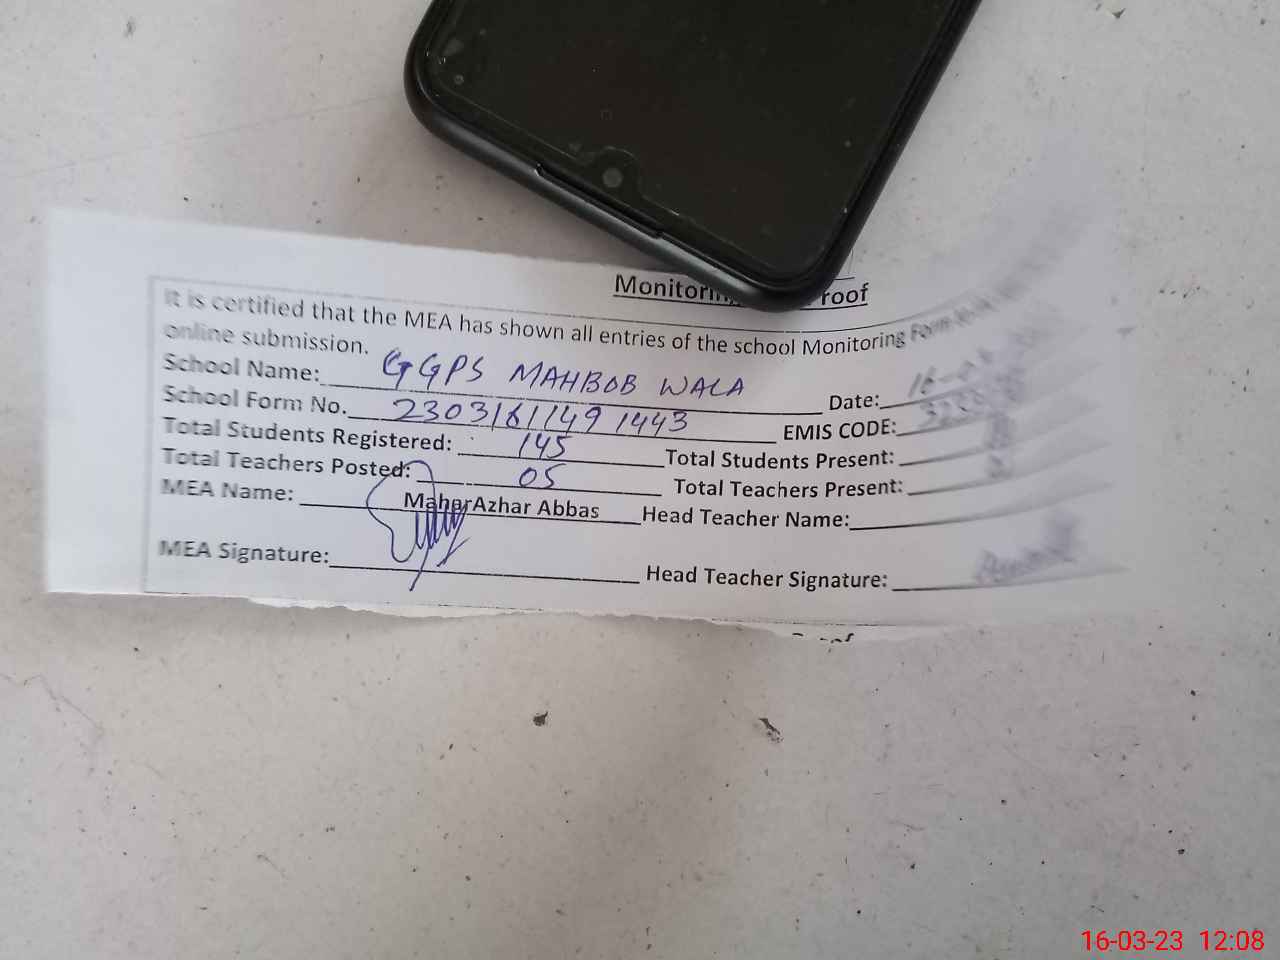 Monitoring roof
It is certified that the MEA has shown all entries of the school Monitoring Form
online submission.
School Name: GGPS MAHBOB WALA Date: 16-0
School Form No. 23031611491443 EMIS CODE:
Total Students Registered: 145 Total Students Present:
Total Teachers Posted: 05 Total Teachers Present:
MEA Name: MaherAzhar Abbas Head Teacher Name:
MEA Signature: Head Teacher Signature:
16-03-23 12:08